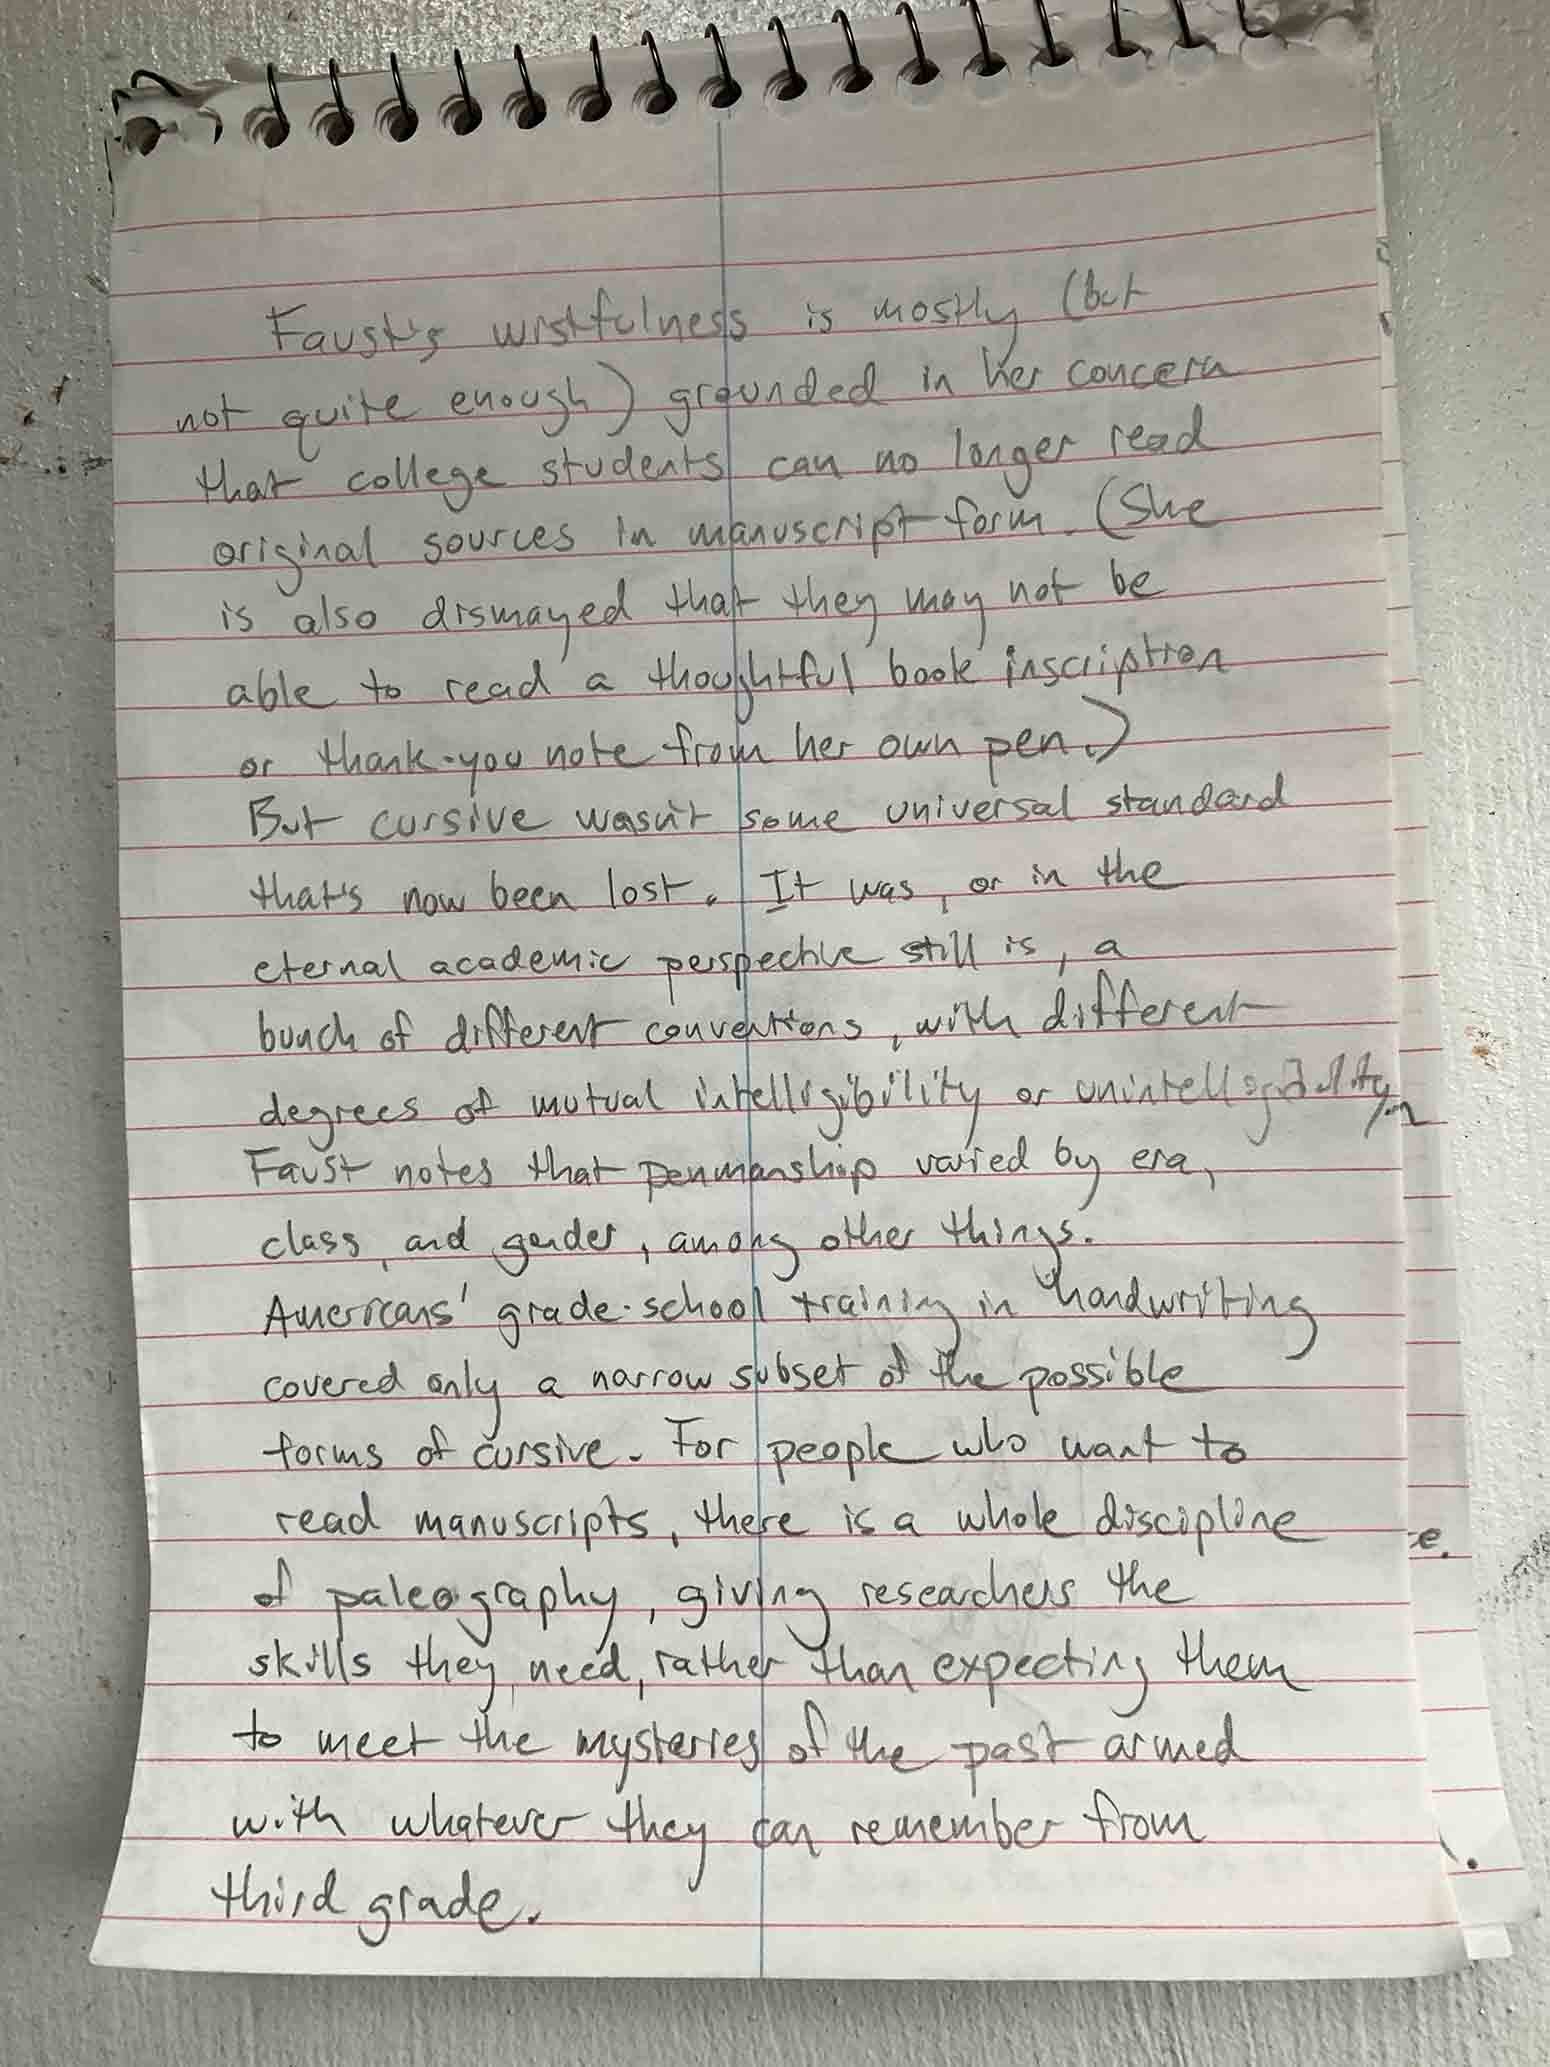 Faust's wistfulness is mostly (but
not quite enough) grounded in her concern
that college students can no longer read
original sources in manuscript form. (She
is also dismayed that they may not be
able to read a thoughtful book inscription
or thank-you note from her own pen.)
But cursive wasn't some universal standard
that's now been lost. It was, or in the
eternal academic perspective still is, a
bunch of different conventions, with different
degrees of mutual intelligibility or unintelligibility.
Faust notes that penmanship varied by era,
class, and gender, among other things.
Americans' grade-school training in handwriting
covered only a narrow subset of the possible
forms of cursive. For people who want to
read manuscripts, there is a whole discipline
of paleography, giving researchers the
skills they need, rather than expecting them
to meet the mysteries of the past armed
with whatever they can remember from
third grade.